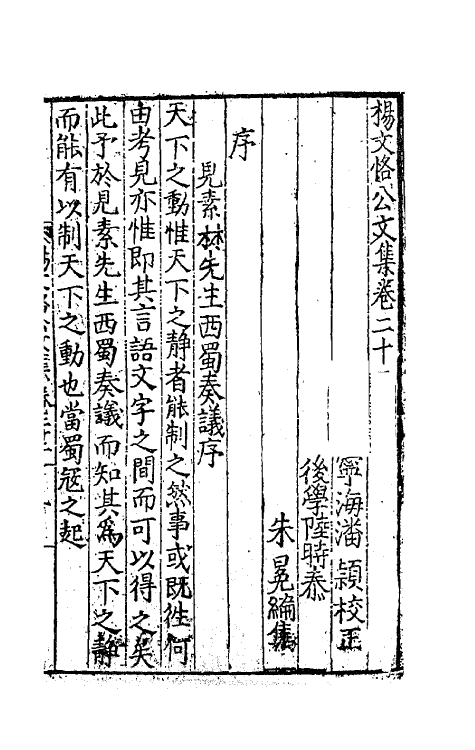 楊文恪公文集卷二十
寧海潘 頴校正
後學陸時泰
朱晃編集
序
見素林先生西蜀奏議序
天下之動惟天下之靜者能制之然事或既徃何
由考見亦惟即其言語文字之間而可以得之矣
此予於見素先生西蜀奏議而知其爲天下之靜
而能有以制天下之動也當蜀冦之起